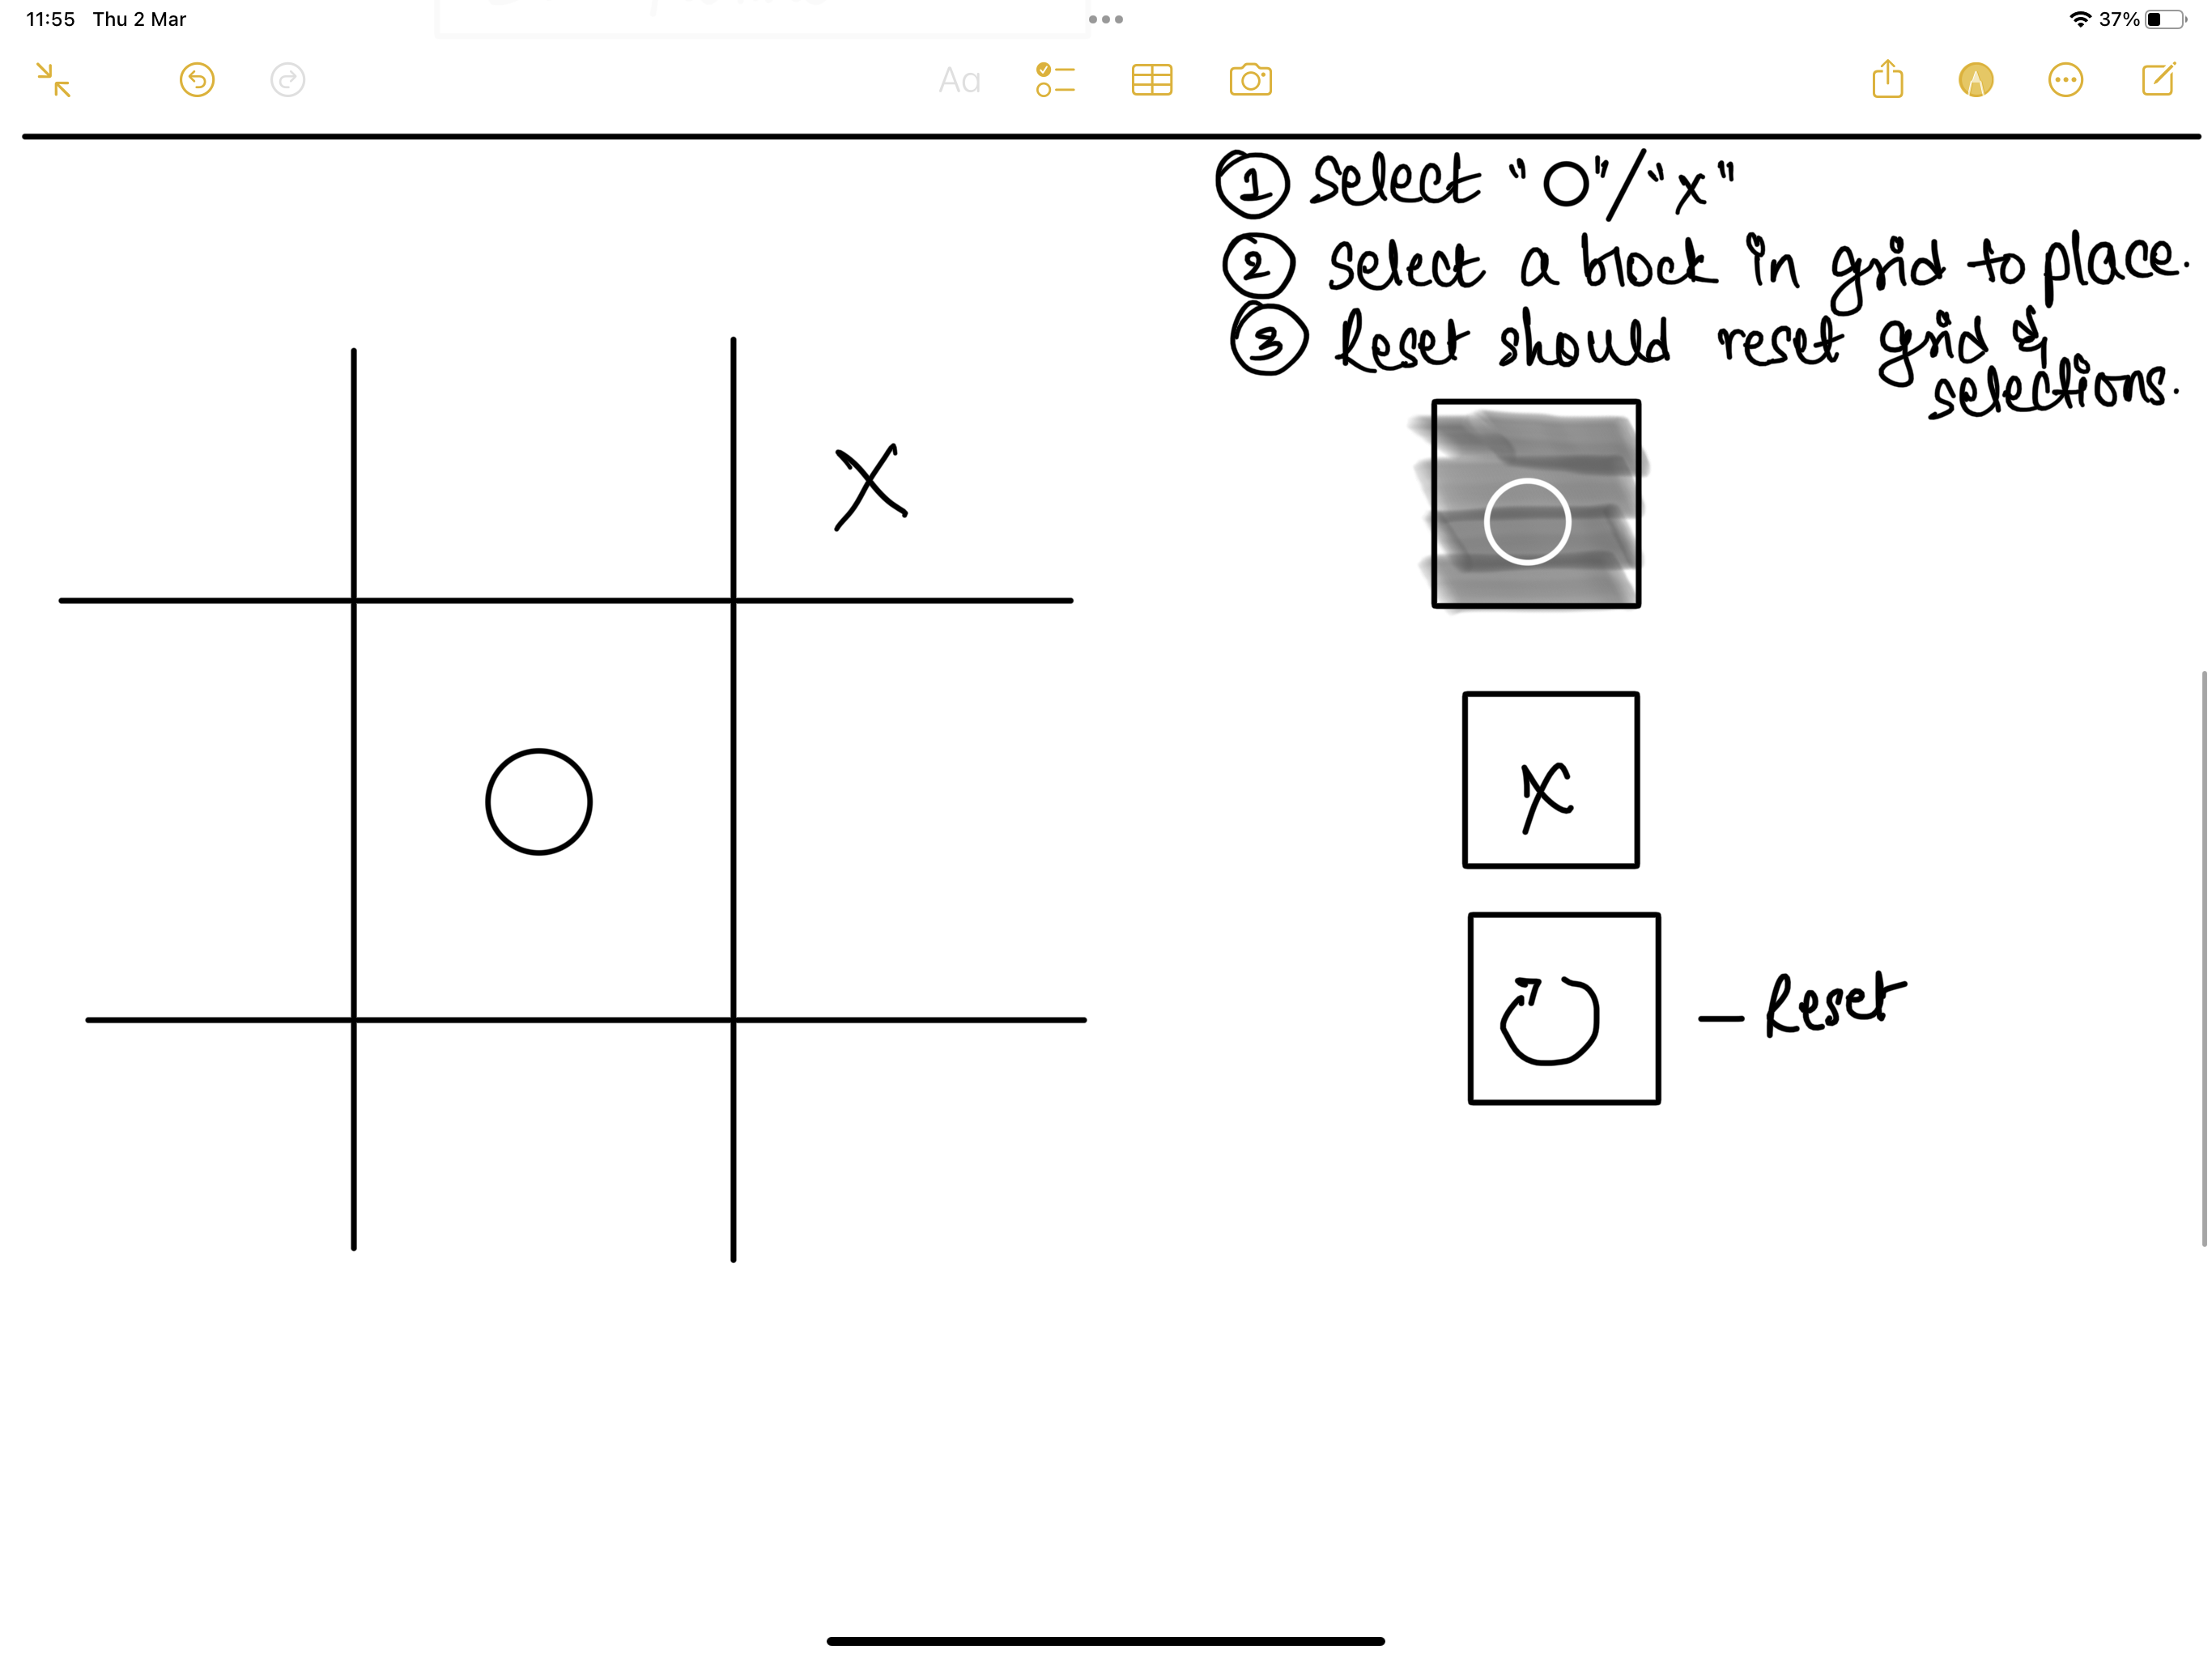 11:55 Thu 2 Mar
37%
Aa
1 Select "O"/"x"
2 Select a block in grid to place.
3 Reset should reset grid &
selections.
X
O
O
x
— Reset